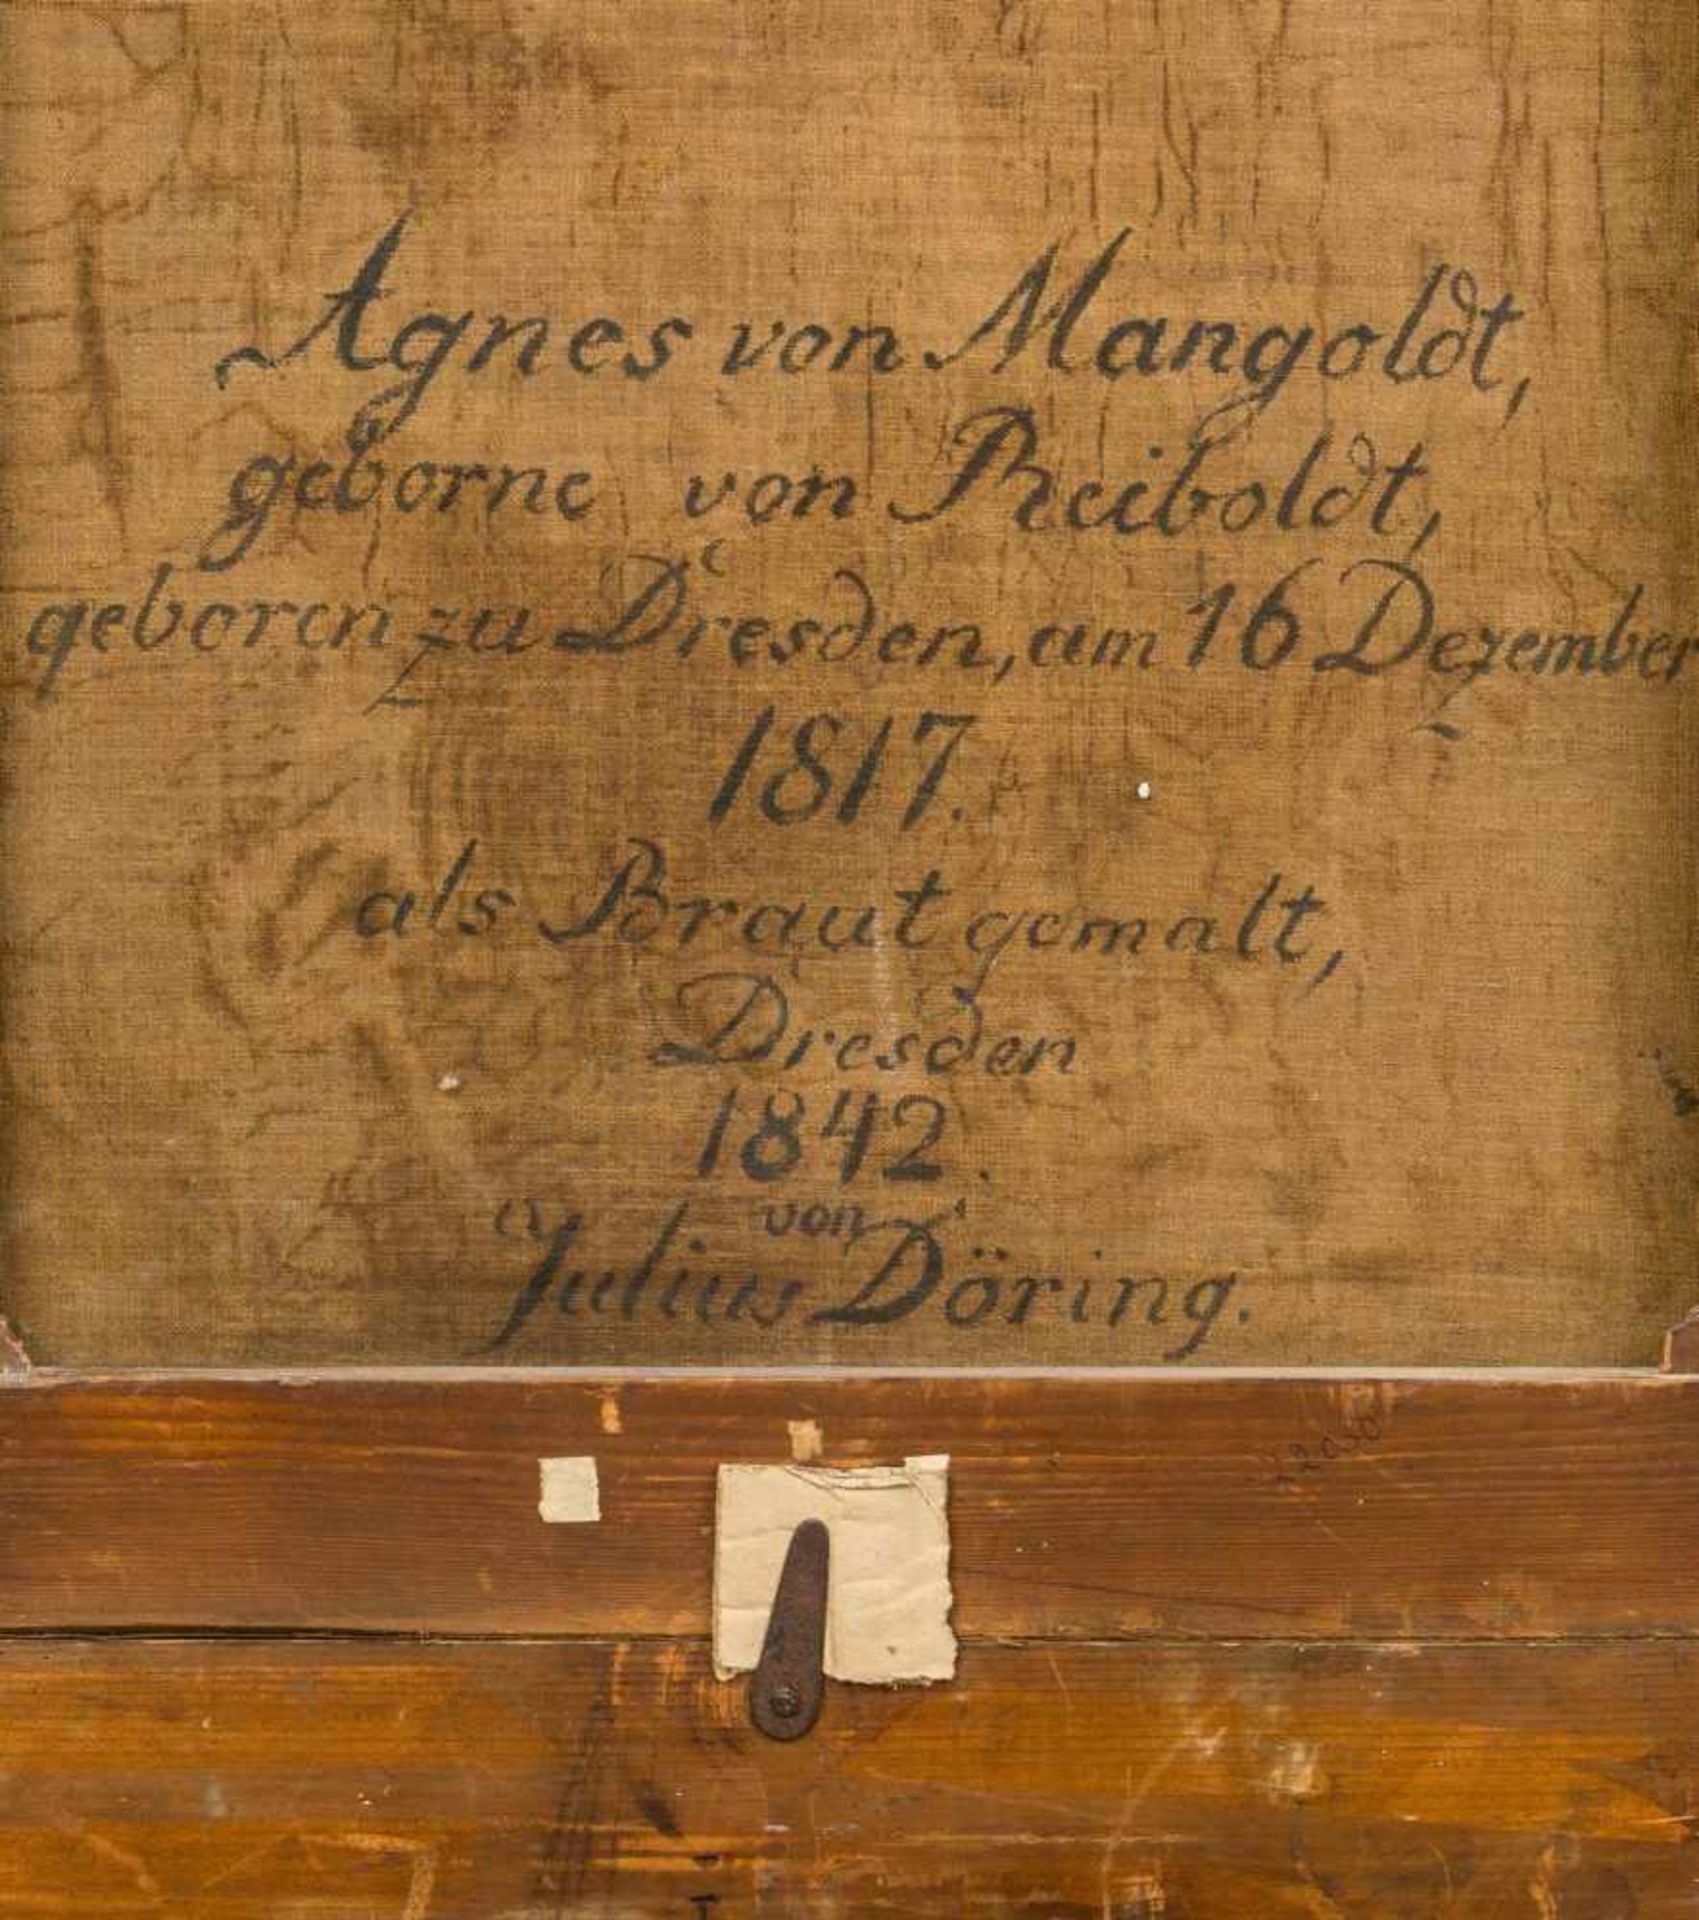 Agnes von Mangoldt,
geborne von Reiboldt,
geboren zu Dresden, am 16 Dezember
1817.
als Braut gemalt,
Dresden
1842.
von
Julius Döring.